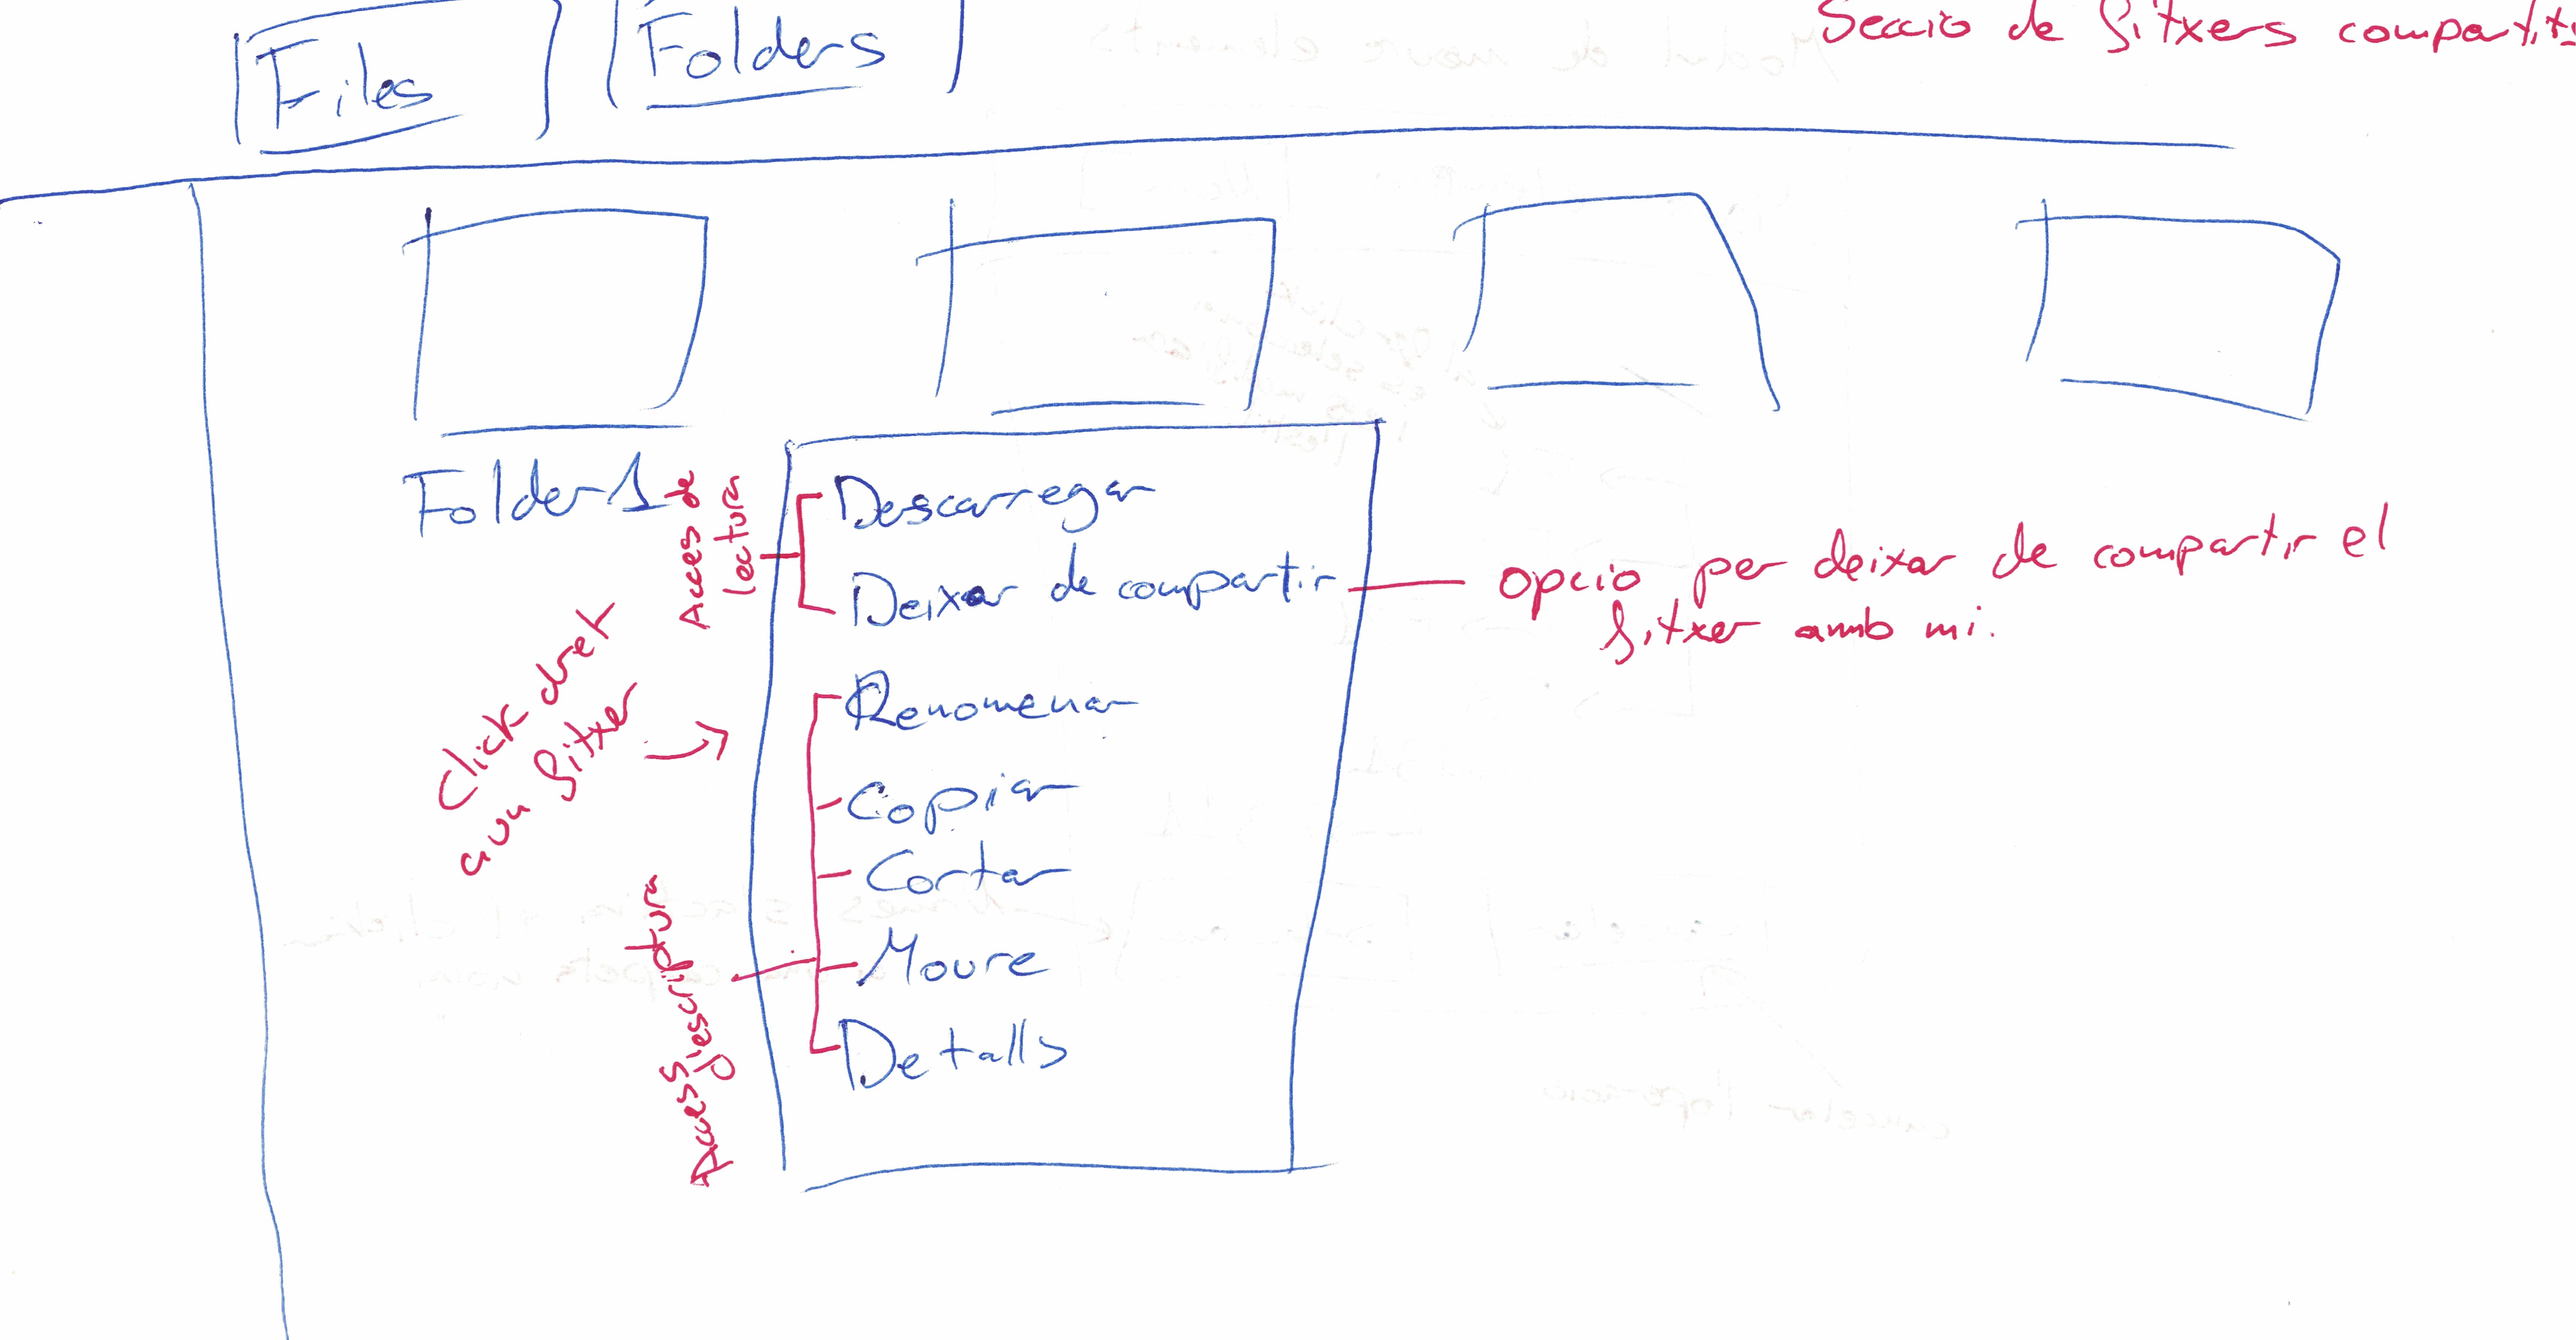 Files
Folders
Secció de fitxers compartits
Folder 1
Acces de
lectura
Descarregar
Deixar de compartir
opcio per deixar de compartir el
fitxer amb mi.
Click dret
a un fitxer
Renomenar
Copiar
Cortar
Moure
Detalls
Access
d'escriptura